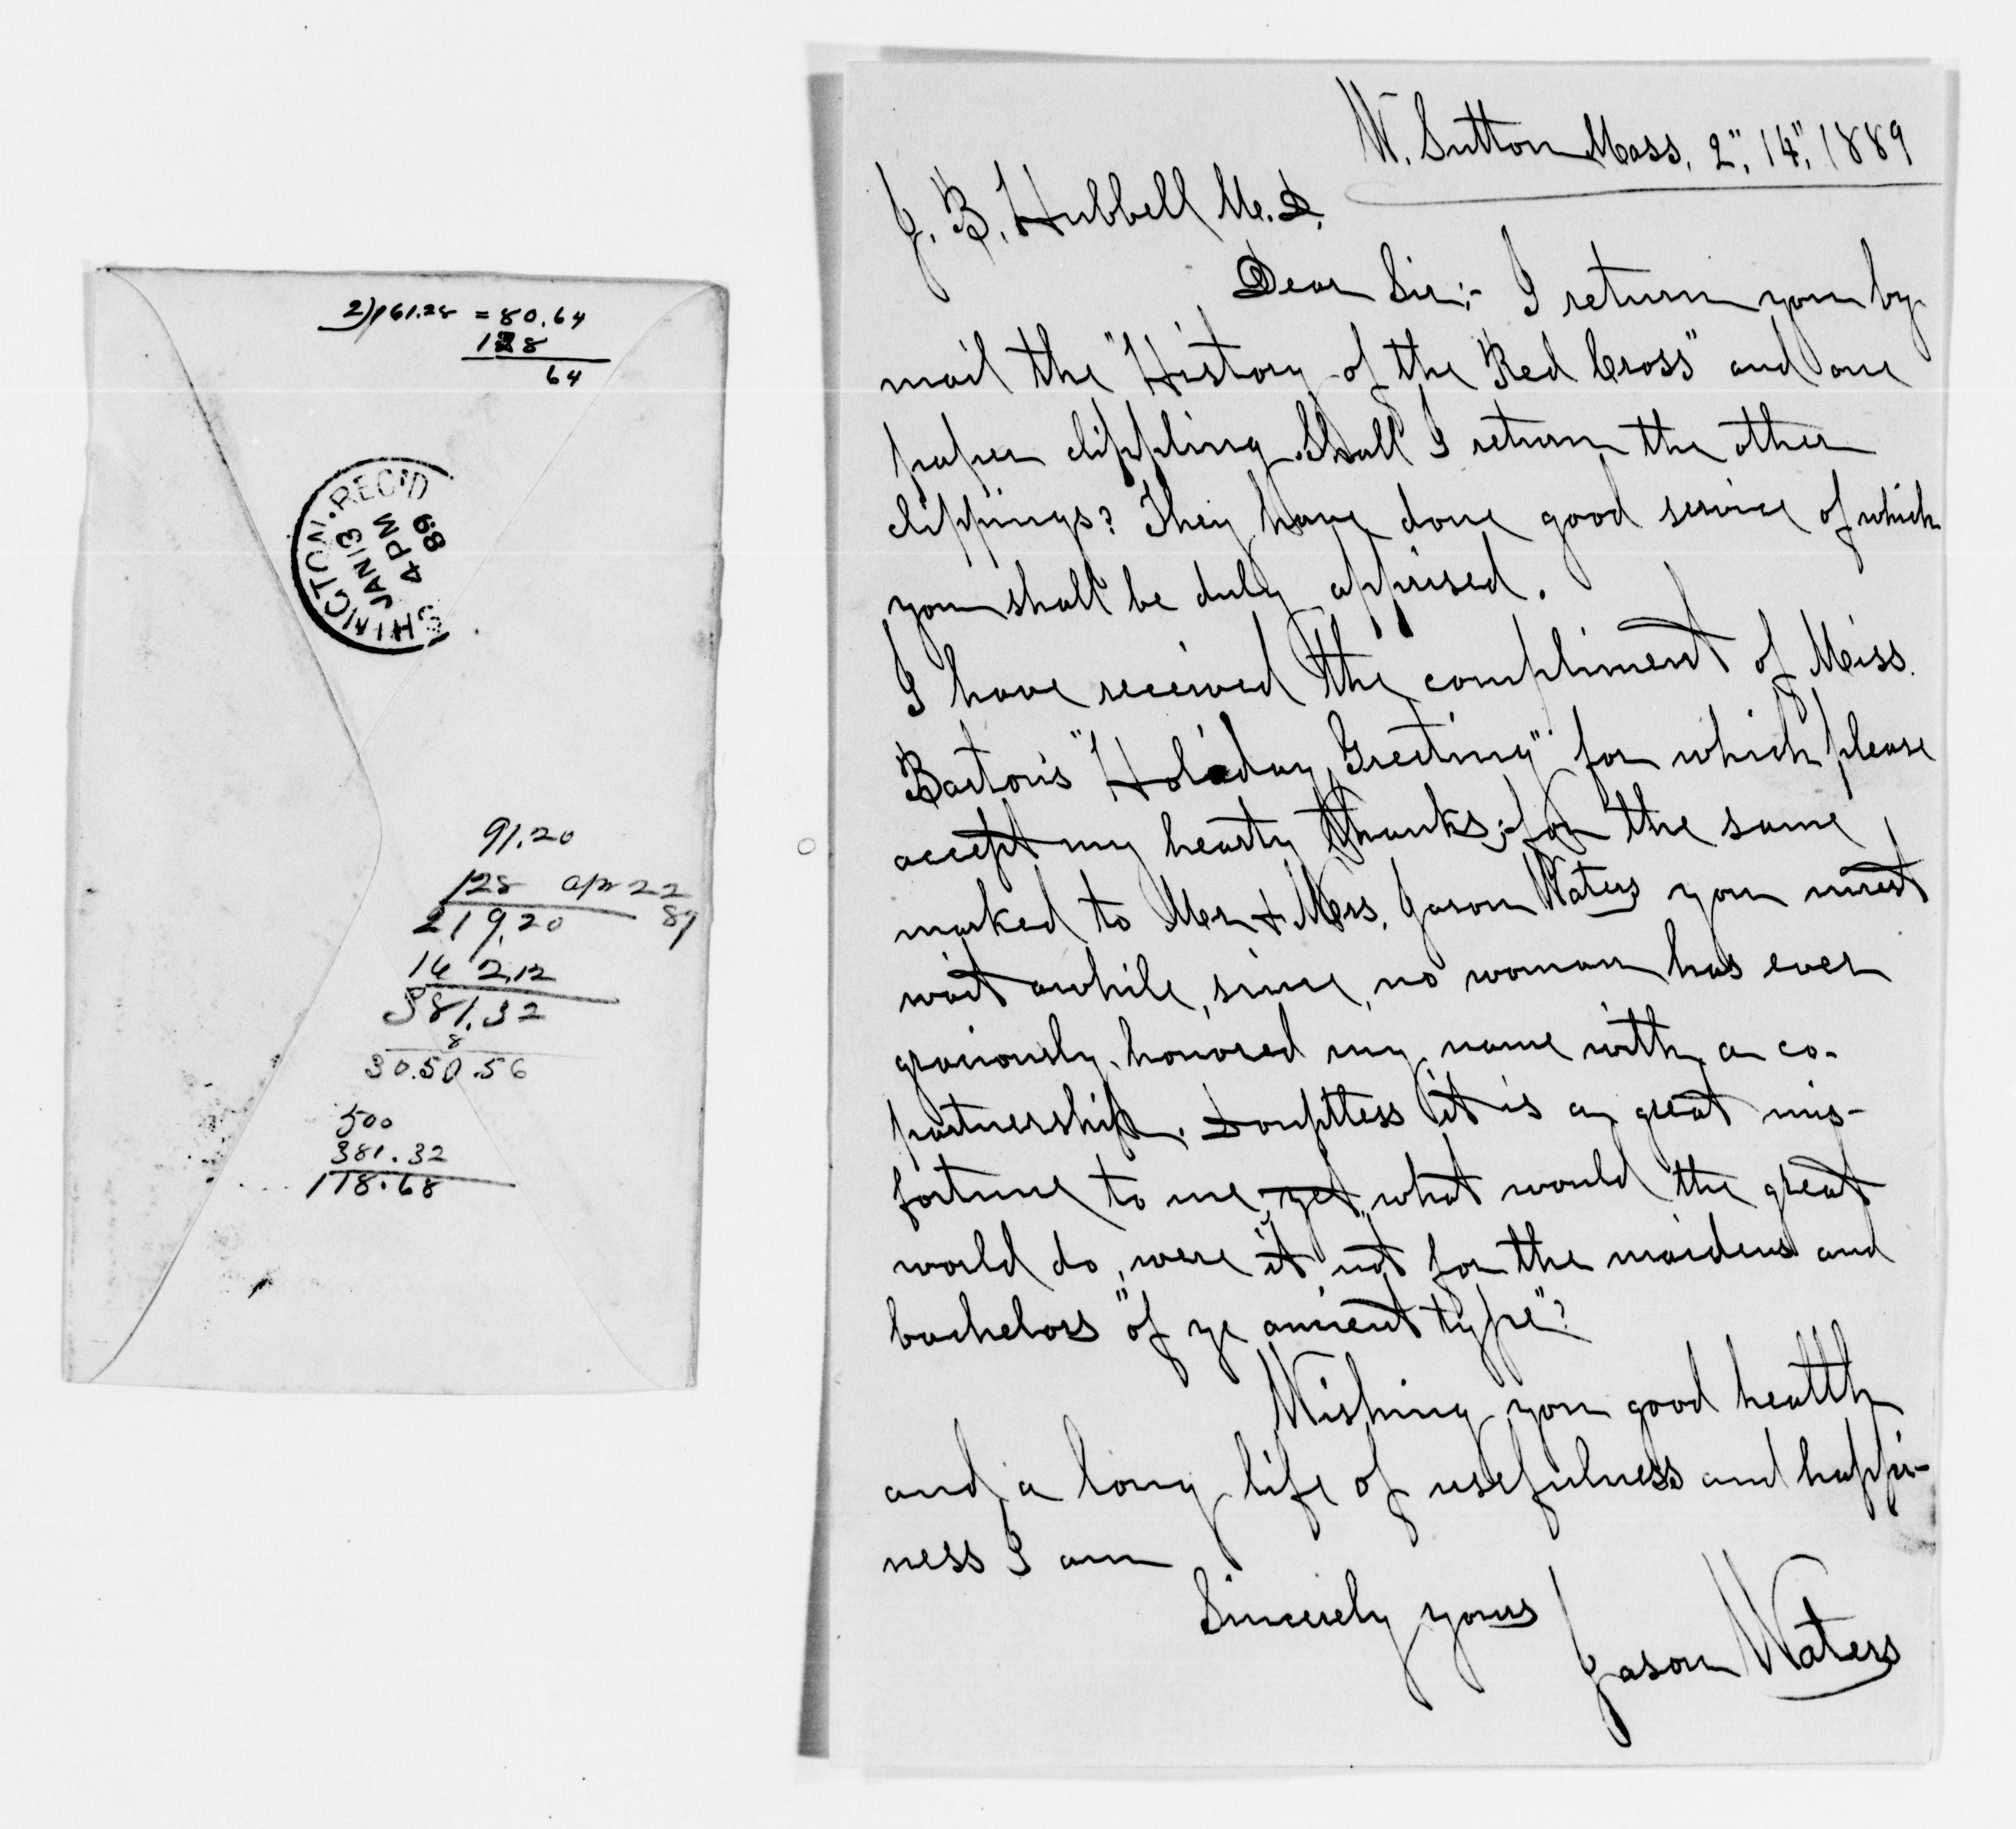 2)161.28 = 80.64
128
64
WASHINGTON. REC'D
JAN 13
4 PM
89
91.20
128 apr 22
219.20 89
162.12
381.32
8
30.50.56
500
381.32
118.68
W. Sutton Mass, 2", 14", 1889
J. B. Hubbell M. D.
Dear Sir:- I return you by
mail the "History of the Red Cross" and one
paper clippling. Shall I return the other
clippings? They have done good service of which
you shall be duly apprised.
I have received the compliment of Miss.
Barton's "Holiday Greeting" for which please
accept my hearty thanks; for the same
marked to Mr + Mrs. Jason Waters you must
wait awhile, since, no woman has ever
graciously honored my name with a co-
partnership. Douptless it is a great mis-
fortune to me, yet, what would the great
world do, were it not for the maidens and
bachelors "of ye ancient type"?
Wishing you good health
and a long life of usefulness and happi-
ness I am
Sincerely yours
Jason Waters